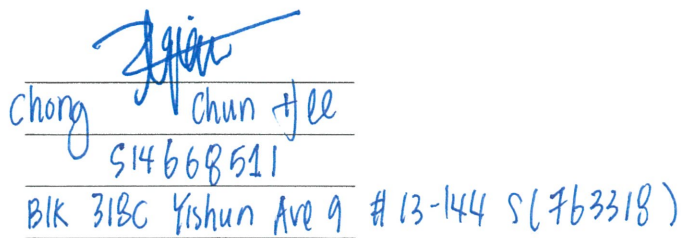 Chong Chun Hee
S14668511
Blk 318C Yishun Ave 9 #13-144 S(763318)